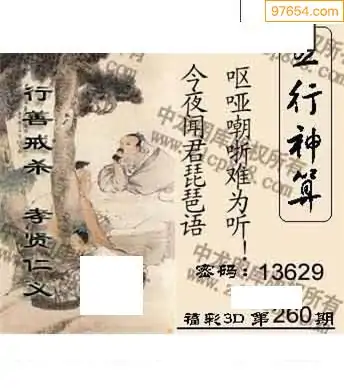 97654.com
行神算
呕哑嘲哳难为听！
今夜闻君琵琶语
行善戒杀 孝贤仁义
密码：13629
福彩3D 第260期